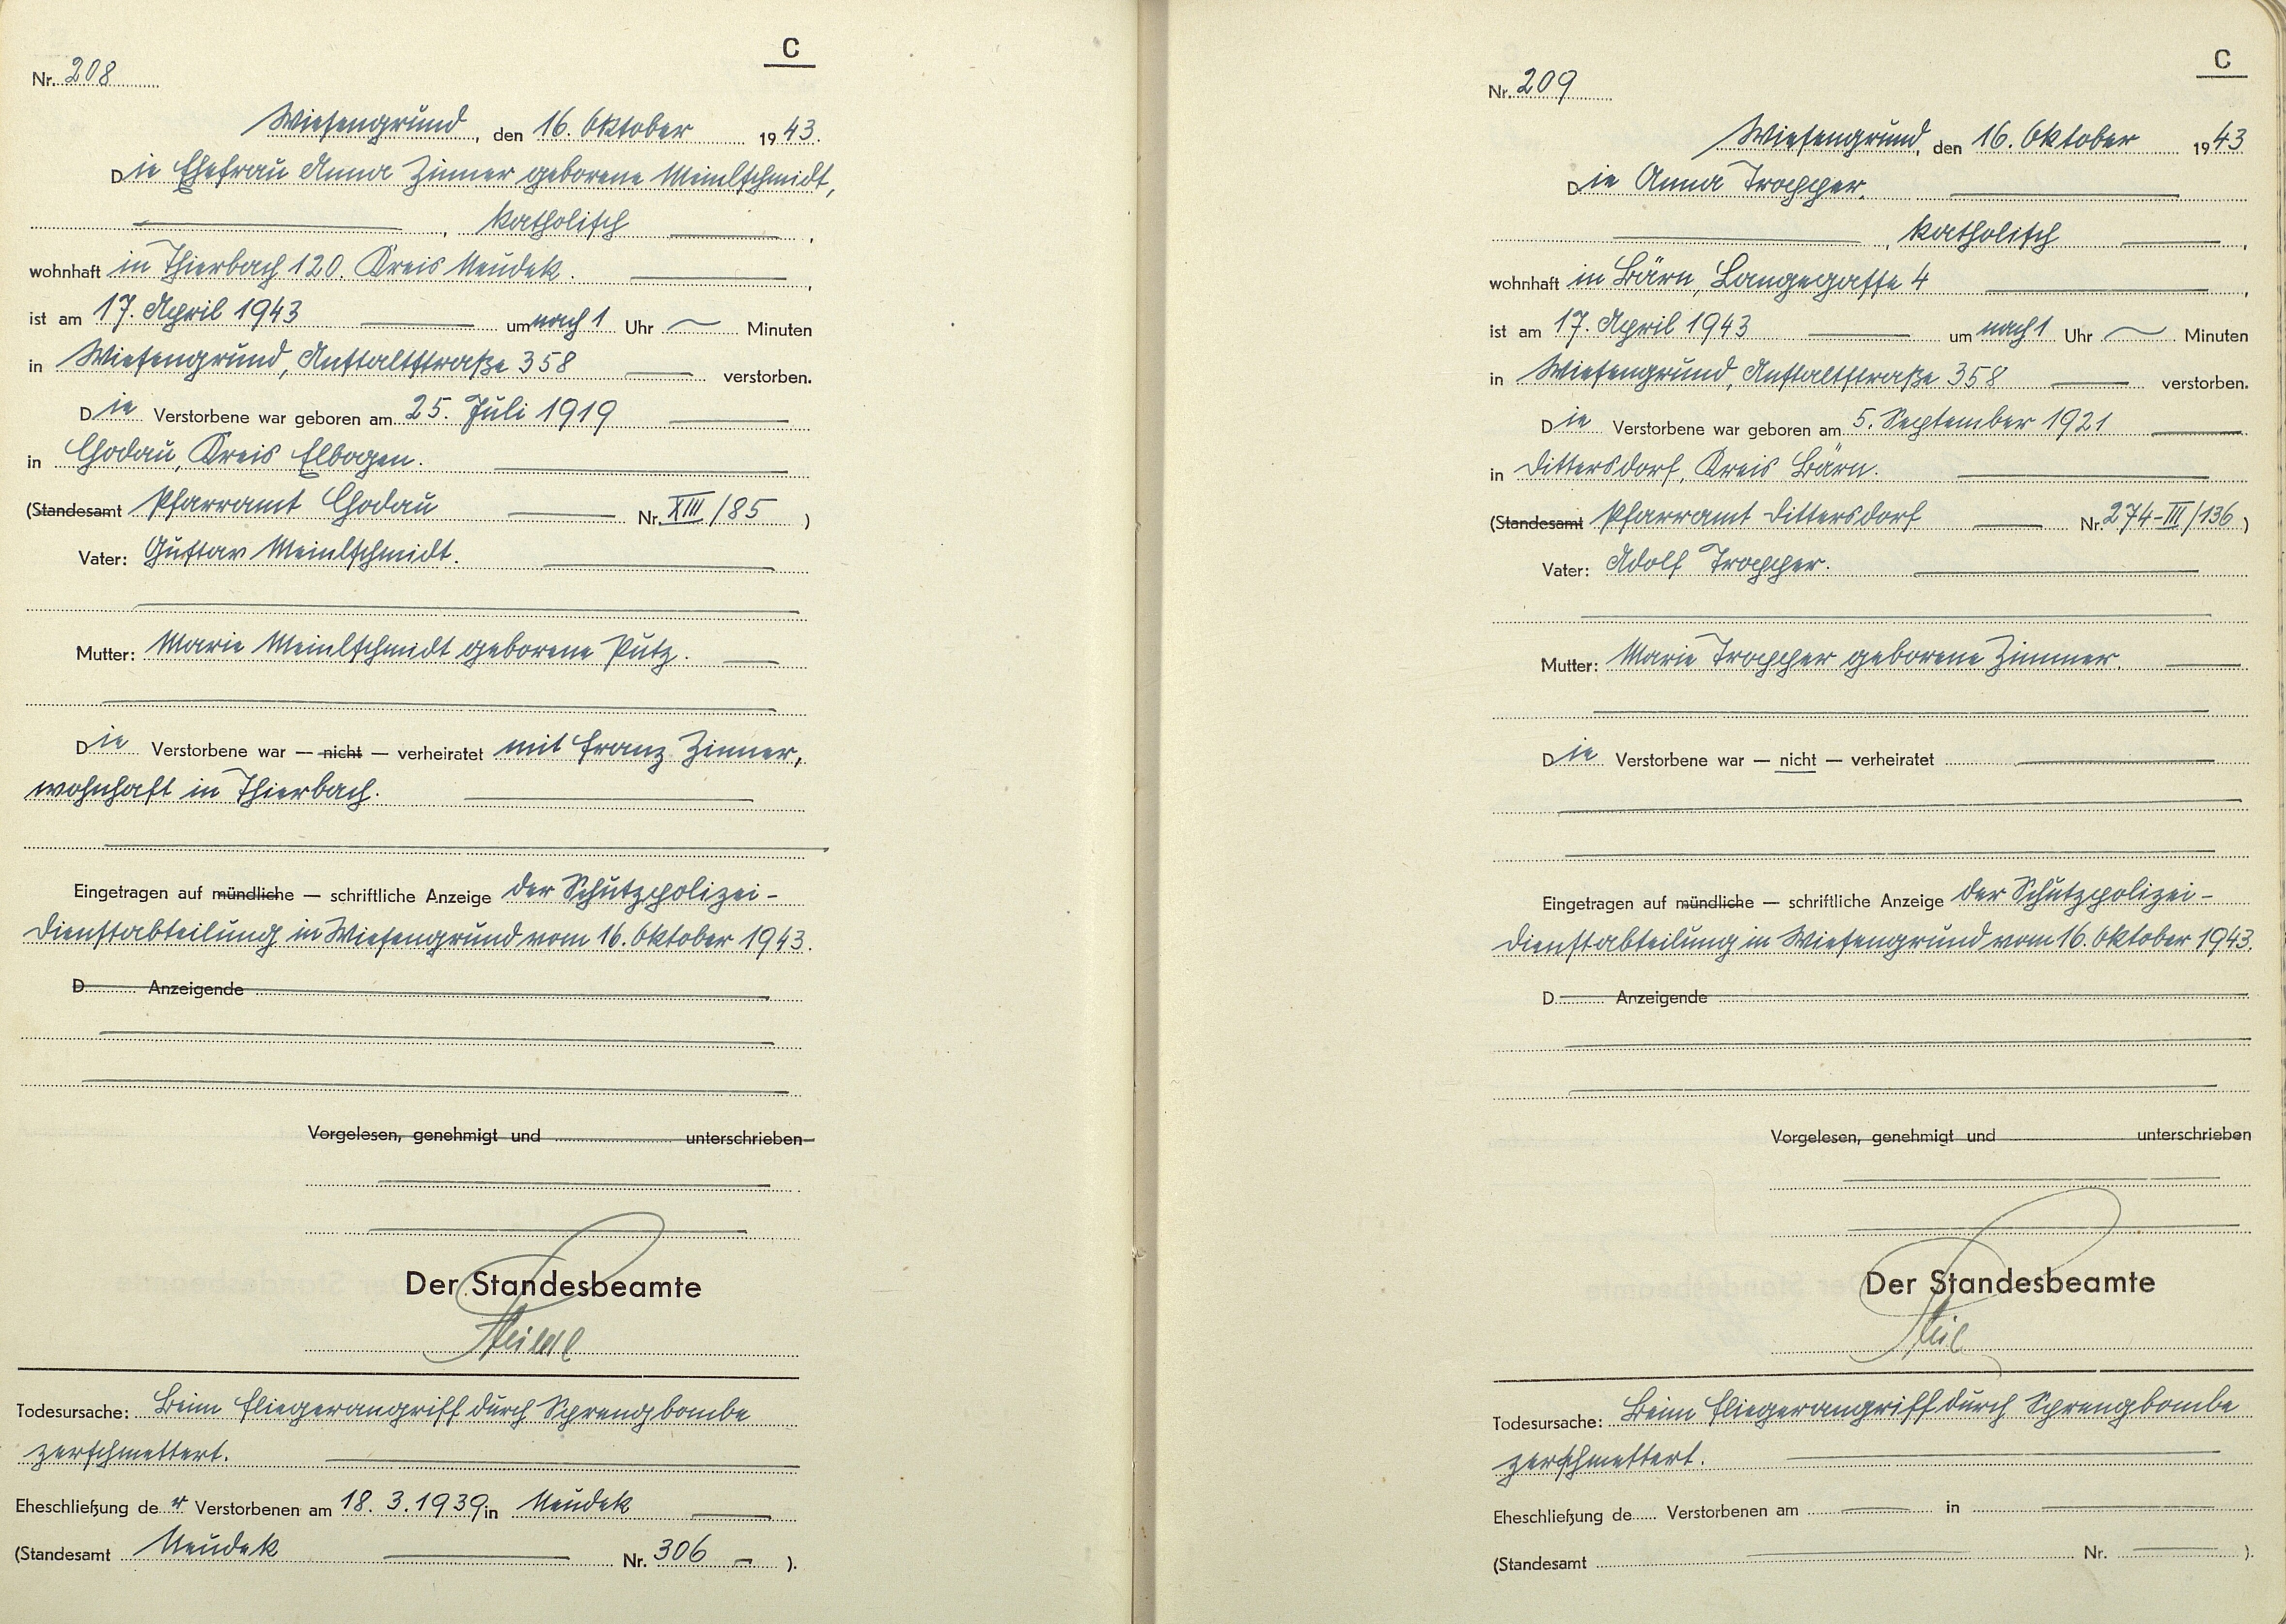 C
Nr. 208
Wiesengrund, den 16. Oktober 1943.
Die Ehefrau Anna Zinner geborene Meinlschmidt,
, katholisch ,
wohnhaft in Thierbach 120. Kreis Neudek. ,
ist am 17. April 1943 um nach 1 Uhr Minuten
in Wiesengrund, Anstaltstraße 358 verstorben.
Die Verstorbene war geboren am 25. Juli 1919
in Chodau, Kreis Elbogen.
(Standesamt Pfarramt Chodau Nr. XIII/85 )
Vater: Gustav Meinlschmidt.
Mutter: Marie Meinlschmidt geborene Putz.
Die Verstorbene war — nicht — verheiratet mit Franz Zinner,
wohnhaft in Thierbach.
Eingetragen auf mündliche — schriftliche Anzeige der Schutzpolizei-
dienstabteilung in Wiesengrund vom 16. Oktober 1943.
D Anzeigende
Vorgelesen, genehmigt und unterschrieben
Der Standesbeamte
Todesursache: Beim Fliegerangriff durch Sprengbombe
zerschmettert.
Eheschließung der Verstorbenen am 18.3.1939 in Neudek
(Standesamt Neudek Nr. 306 – ).
C
Nr. 209
Wiesengrund, den 16. Oktober 1943
Die Anna Tropper.
, katholisch ,
wohnhaft in Bärn, Langegasse 4 ,
ist am 17. April 1943 um nach 1 Uhr Minuten
in Wiesengrund, Anstaltstraße 358 verstorben.
Die Verstorbene war geboren am 5. September 1921
in Dittersdorf, Kreis Bärn.
(Standesamt Pfarramt Dittersdorf Nr. 274-III/136 )
Vater: Adolf Tropper.
Mutter: Marie Tropper geborene Zimmer.
Die Verstorbene war — nicht — verheiratet
Eingetragen auf mündliche — schriftliche Anzeige der Schutzpolizei-
dienstabteilung in Wiesengrund vom 16. Oktober 1943.
D Anzeigende
Vorgelesen, genehmigt und unterschrieben
Der Standesbeamte
Todesursache: Beim Fliegerangriff durch Sprengbombe
zerschmettert.
Eheschließung de Verstorbenen am in
(Standesamt Nr. ).